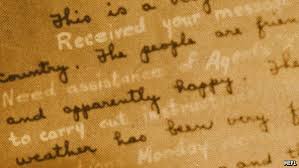 This is a
Received your message
country. The people are frien
Need assistance of Agents
and apparently happy. The
to carry out instruct
weather has been very f
Monday